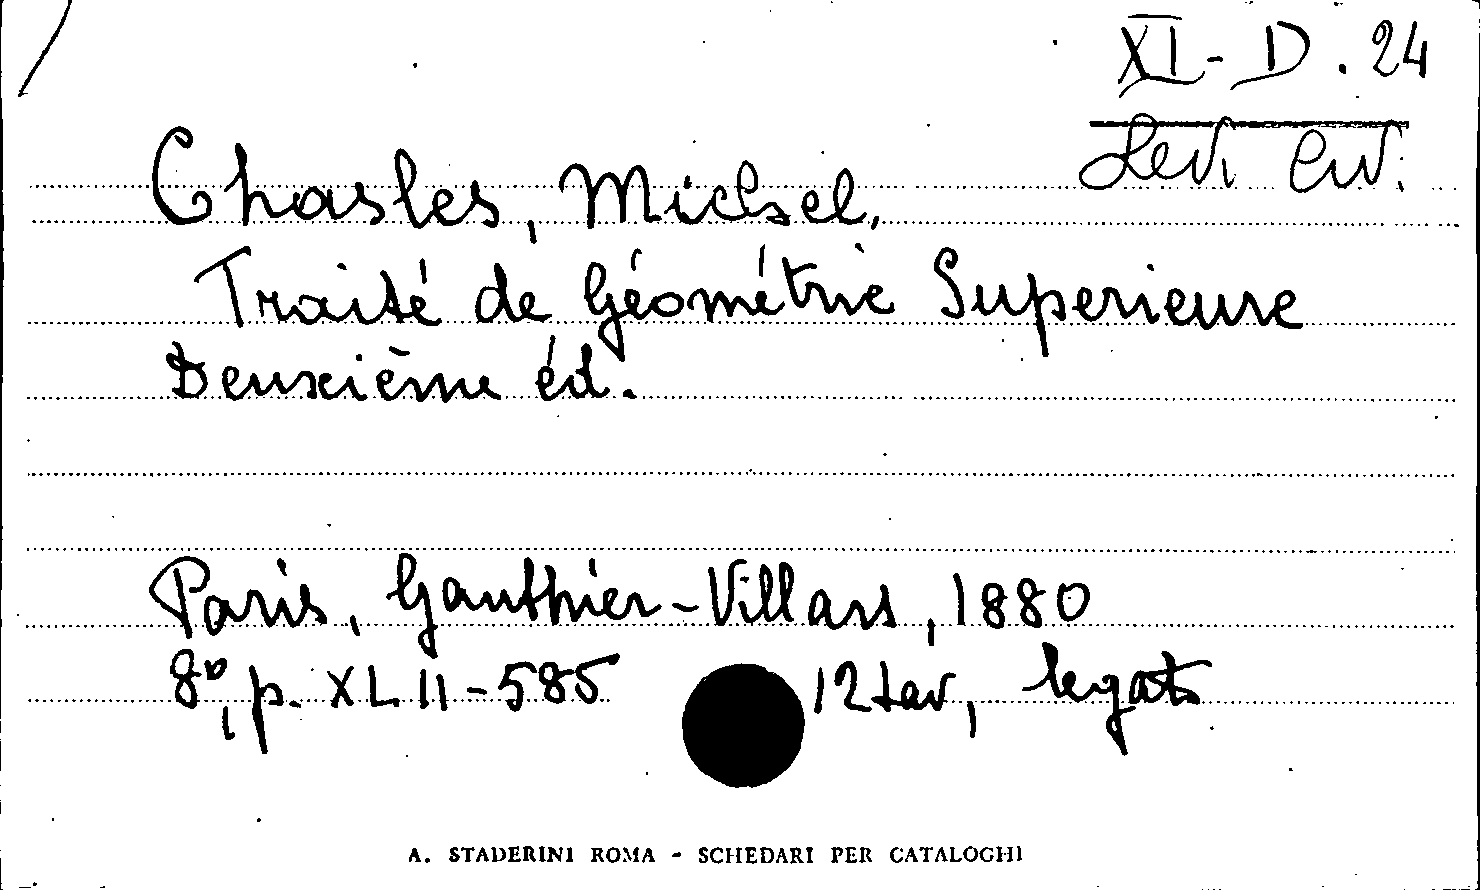 XI - D. 24
Levi Civ.
Chasles, Michel,
Traité de Géométrie Superieure
Deuxième éd.
Paris, Gauthier-Villars, 1880
8°, p. XLII-585 12 tav, legato
A. STADERINI ROMA - SCHEDARI PER CATALOGHI